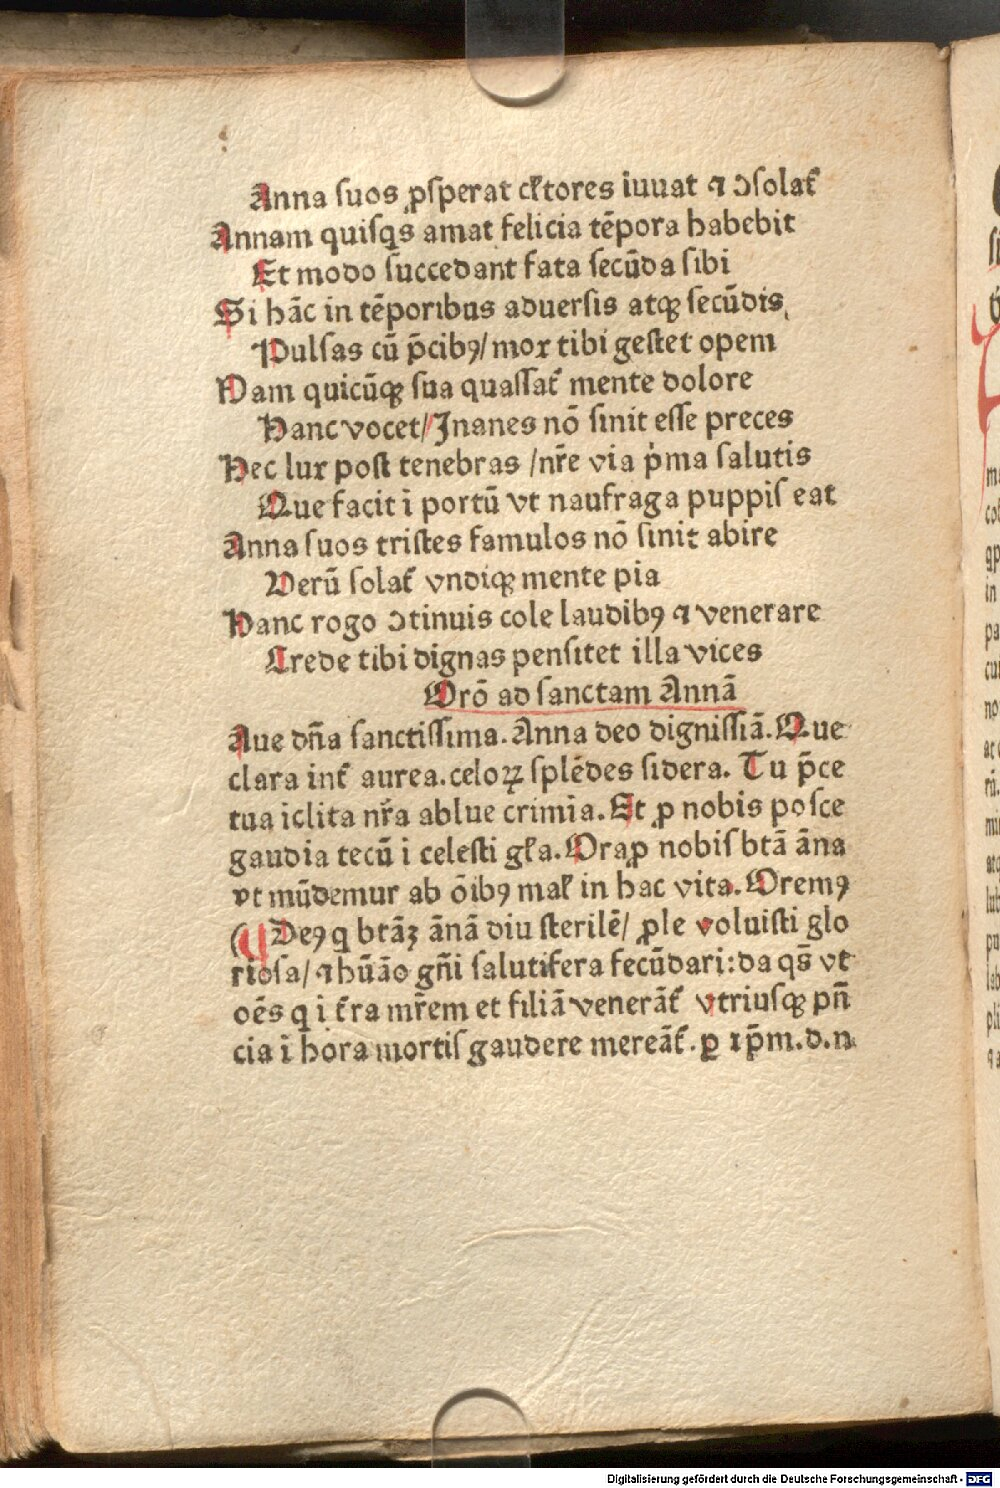 Anna suos ꝓsperat cl̄tores iuuat ⁊ ↄsolat᷑
Annam quisq̄s amat felicia tēpora habebit
Et modo succedant fata secūda sibi
Si hāc in tēporibus aduersis atqꝫ secūdis
Pulsas cū p̄cibꝰ/mox tibi gestet opem
Nam quicūqꝫ sua quassat᷑ mente dolore
Hanc vocet/Inanes nō sinit esse preces
Hec lux post tenebras /nr̄e via pͥma salutis
Que facit ī portū vt naufraga puppis eat
Anna suos tristes famulos nō sinit abire
Verū solat᷑ vndiqꝫ mente pia
Hanc rogo ↄtinuis cole laudibꝰ ⁊ venerare
Crede tibi dignas pensitet illa vices
Orō ad sanctam Annā
Aue dn̄a sanctissima. Anna deo dignissīā. Que
clara int᷑ aurea. celoꝝ splēdes sidera. Tu p̄ce
tua iclita nr̄a ablue crimīa. Et ꝓ nobis posce
gaudia tecū i celesti gl̄a. Ora ꝓ nobis btā āna
vt mūdemur ab ōibꝰ mal̄ in hac vita. Oremꝰ
Deꝰ q btāꝫ ānā diu sterilē/ ꝓle voluisti glo
riosa/ ⁊ hūāo gn̄i salutifera fecūdari: da qs̄ vt
oēs q i t᷑ra mr̄em et filiā venerāt᷑ vtriusqꝫ pn̄
cia ī hora mortis gaudere mereāt᷑. ꝑ xp̄m. d. n
Digitalisierung gefördert durch die Deutsche Forschungsgemeinschaft - DFG